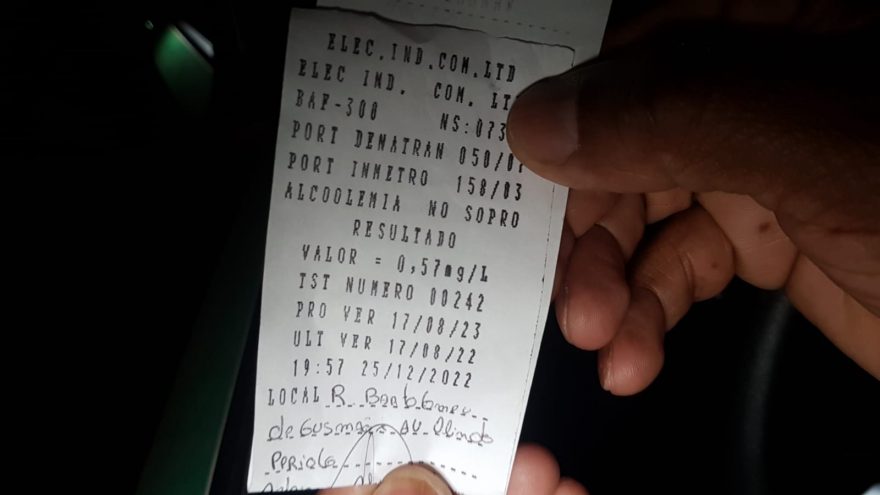 ELEC.IND.COM.LTD
ELEC IND. COM. LT
BAF-300 NS:073
PORT DENATRAN 050/0
PORT INMETRO 158/03
ALCOOLEMIA NO SOPRO
RESULTADO
VALOR = 0,57mg/L
TST NUMERO 00242
PRO VER 17/08/23
ULT VER 17/08/22
19:57 25/12/2022
LOCAL R.
de Gusmão AV. Olindo
PERIOLO